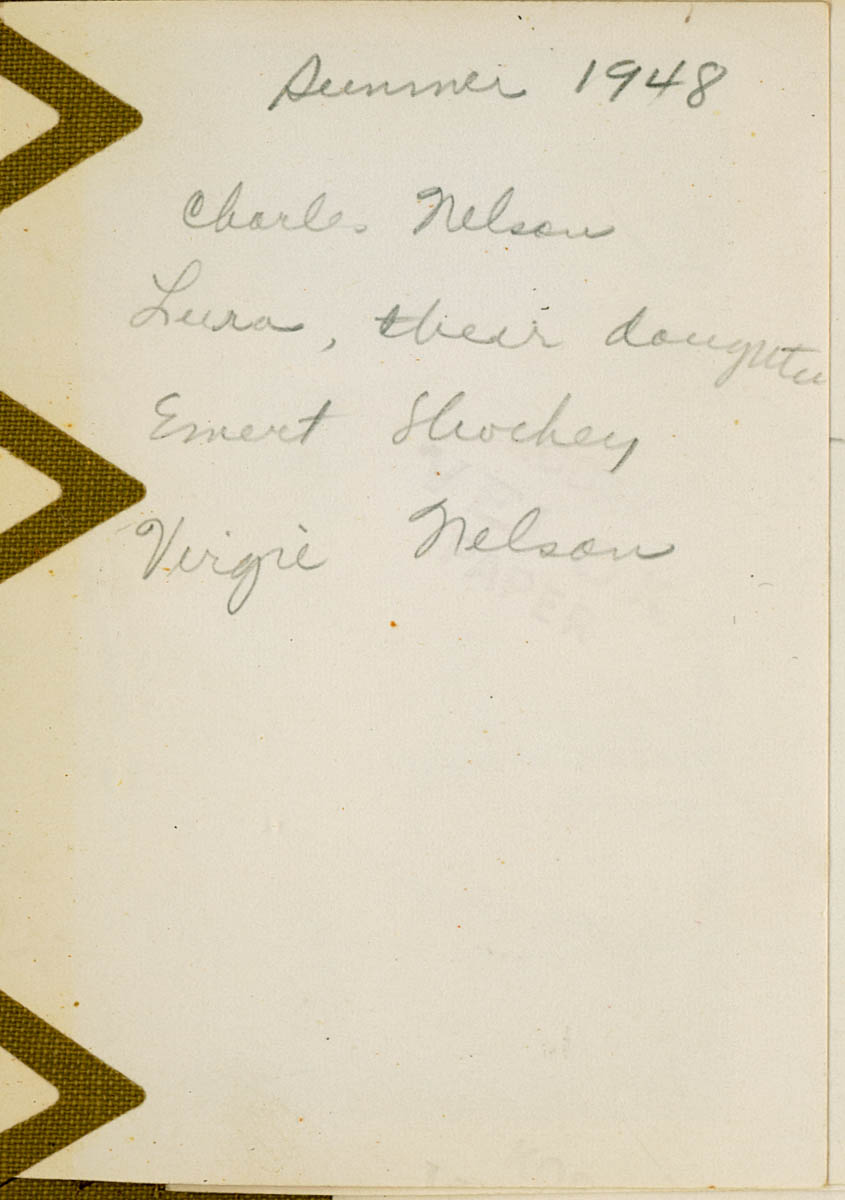 Summer 1948
Charles Nelson
Lura, their daughter
Emert Shockey
Virgie Nelson
APER